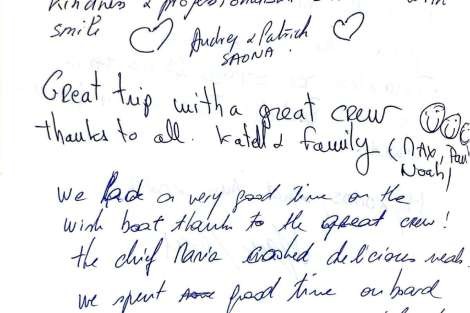 kindness & professionalism with
smile
Audrey & Patrick
SAONA.
Great trip with a great crew
thanks to all. Katell & family (MAX, Paul
Noah)
we had a very good time on the
wish boat thanks to the great crew!
the chief Maria cooked delicious meals.
we spent good time onboard